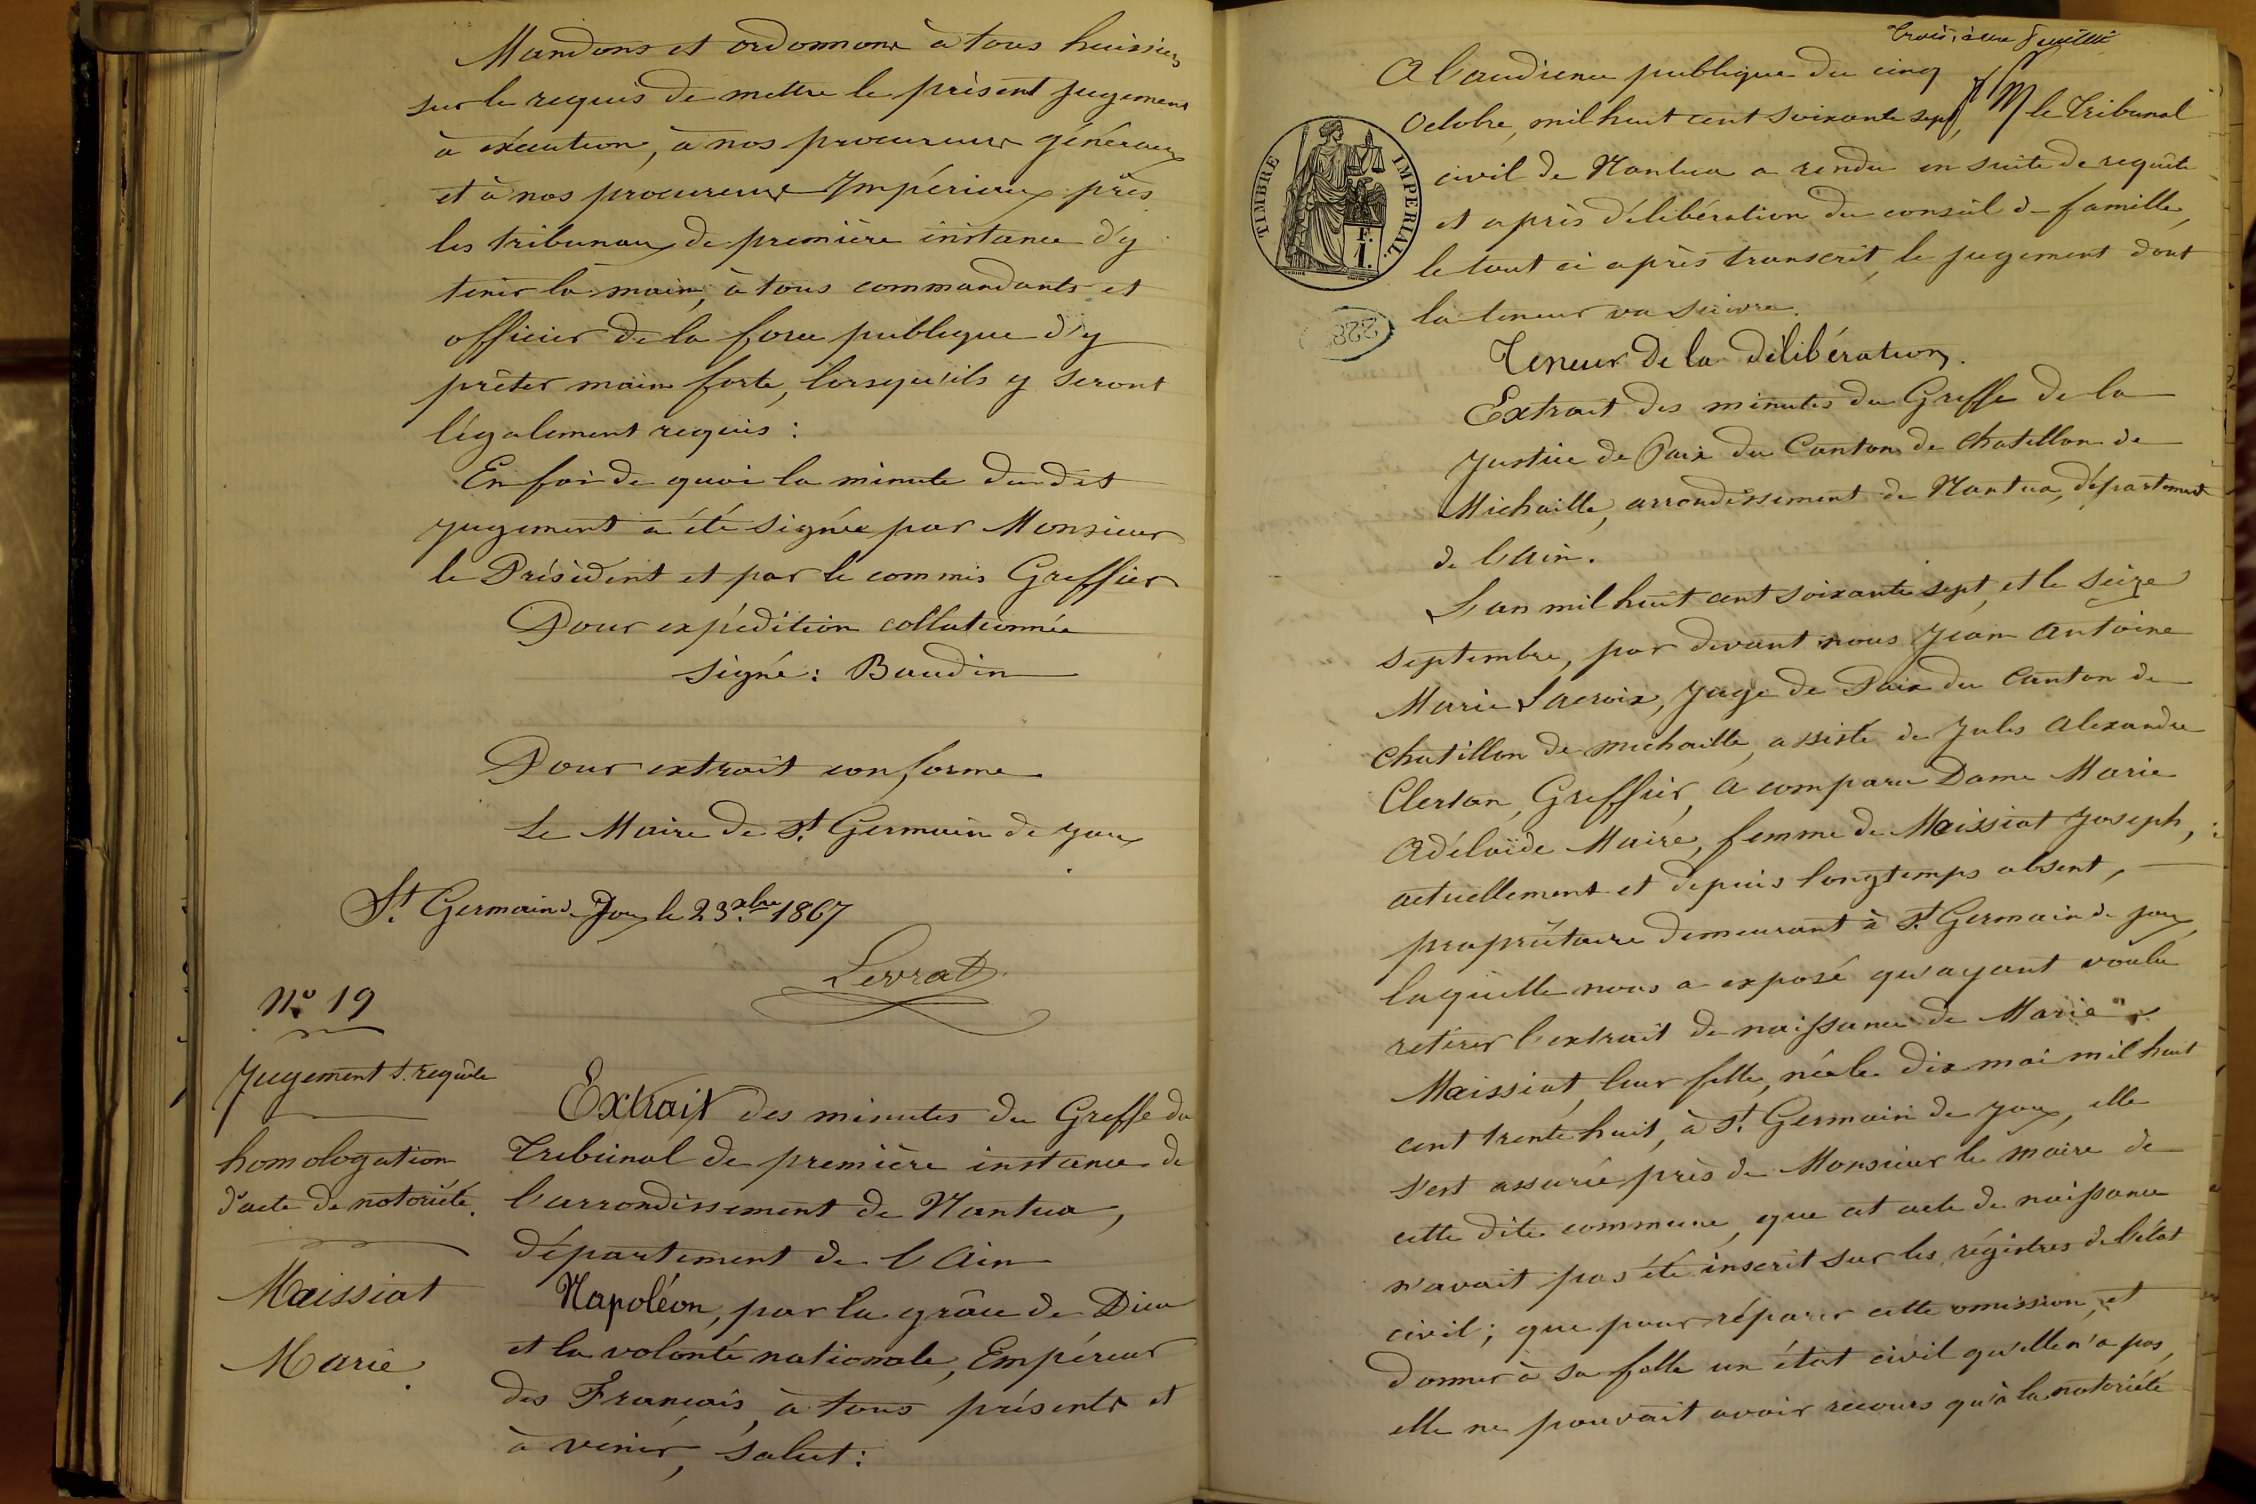 Mandons et ordonnons à tous huissiers
sur le requis de mettre le présent jugement
à exécution, à nos procureurs généraux
et à nos procureurs Impériaux près
les tribunaux de première instance d'y
tenir la main, à tous commandants et
officiers de la force publique d'y
prêter main forte, lorsqu'ils y seront
légalement requis :
En foi de quoi la minute dudit
jugement a été signée par Monsieur
le Président et par le commis Greffier
Pour expédition collationnée
signé : Baudin
Pour extrait conforme
Le Maire de St Germain de Joux
St Germain de Joux le 23 xbre 1867
Levrat
No 19
Jugement s. requête
homologation
d'acte de notoriété.
Maissiat
Marie.
Extrait des minutes du Greffe du
Tribunal de première instance de
l'arrondissement de Nantua,
département de l'Ain
Napoléon, par la grâce de Dieu
et la volonté nationale, Empéreur
des Français, à tous présents et
à venir, salut :
troisième feuille
A l'audience publique du cinq
Octobre, mil huit cent soixante sept, le Tribunal
civil de Nantua a rendu en suite de requête
et après délibération du conseil de famille,
le tout ci après transcrit, le jugement dont
la teneur va suivre.
TIMBRE IMPERIAL.
F.
1.
228
Teneur de la délibération.
Extrait des minutes du Greffe de la
Justice de Paix du Canton de Chatillon de
Michaille, arrondissement de Nantua, département
de l'Ain.
L'an mil huit cent soixante sept, et le seize
septembre, par devant nous Jean Antoine
Marie Lacroix, Juge de Paix du Canton de
Chatillon de Michaille, assisté de Jules Alexandre
Clertan, Greffier, a comparu Dame Marie
Adélaïde Maire, femme de Maissiat Joseph,
actuellement et depuis longtemps absent,
propriétaire demeurant à St Germain de Joux,
laquelle nous a exposé qu'ayant voulu
retirer l'extrait de naissance de Marie
Maissiat, leur fille, née le dix mai mil huit
cent trente huit, à St Germain de Joux, elle
s'est assurée près de Monsieur le maire de
cette dite commune, que cet acte de naissance
n'avait pas été inscrit sur les régistres de l'état
civil ; que pour réparer cette omission, et
donner à sa fille un état civil qu'elle n'a pas,
elle ne pouvait avoir recours qu'à la notoriété